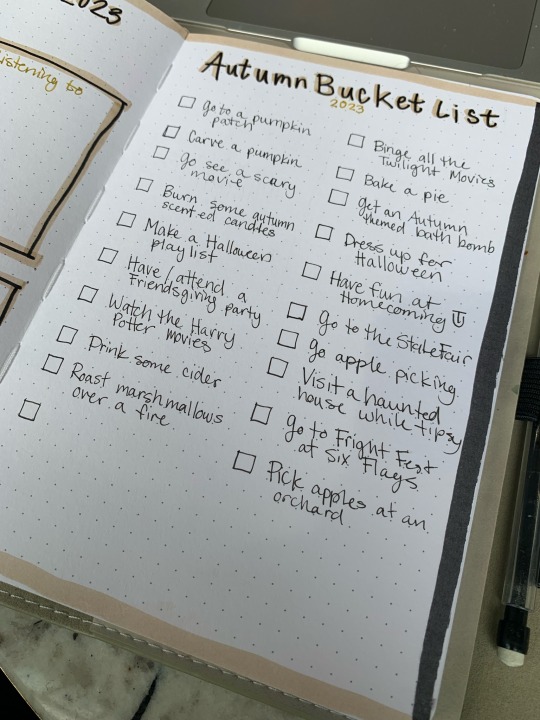 2023
listening to
Autumn Bucket List
2023
Go to a pumpkin
patch
Carve a pumpkin
Go see a scary
movie
Burn some autumn
scented candles
Make a Halloween
playlist
Have / attend a
Friendsgiving party
Watch the Harry
Potter movies
Drink some cider
Roast marshmallows
over a fire
Binge all the
Twilight Movies
Bake a pie
Get an Autumn
themed bath bomb
Dress up for
Halloween
Have fun at
Homecoming
Go to the State Fair
Go apple picking
Visit a haunted
house while tipsy
Go to Fright Fest
at Six Flags
Pick apples at an
orchard